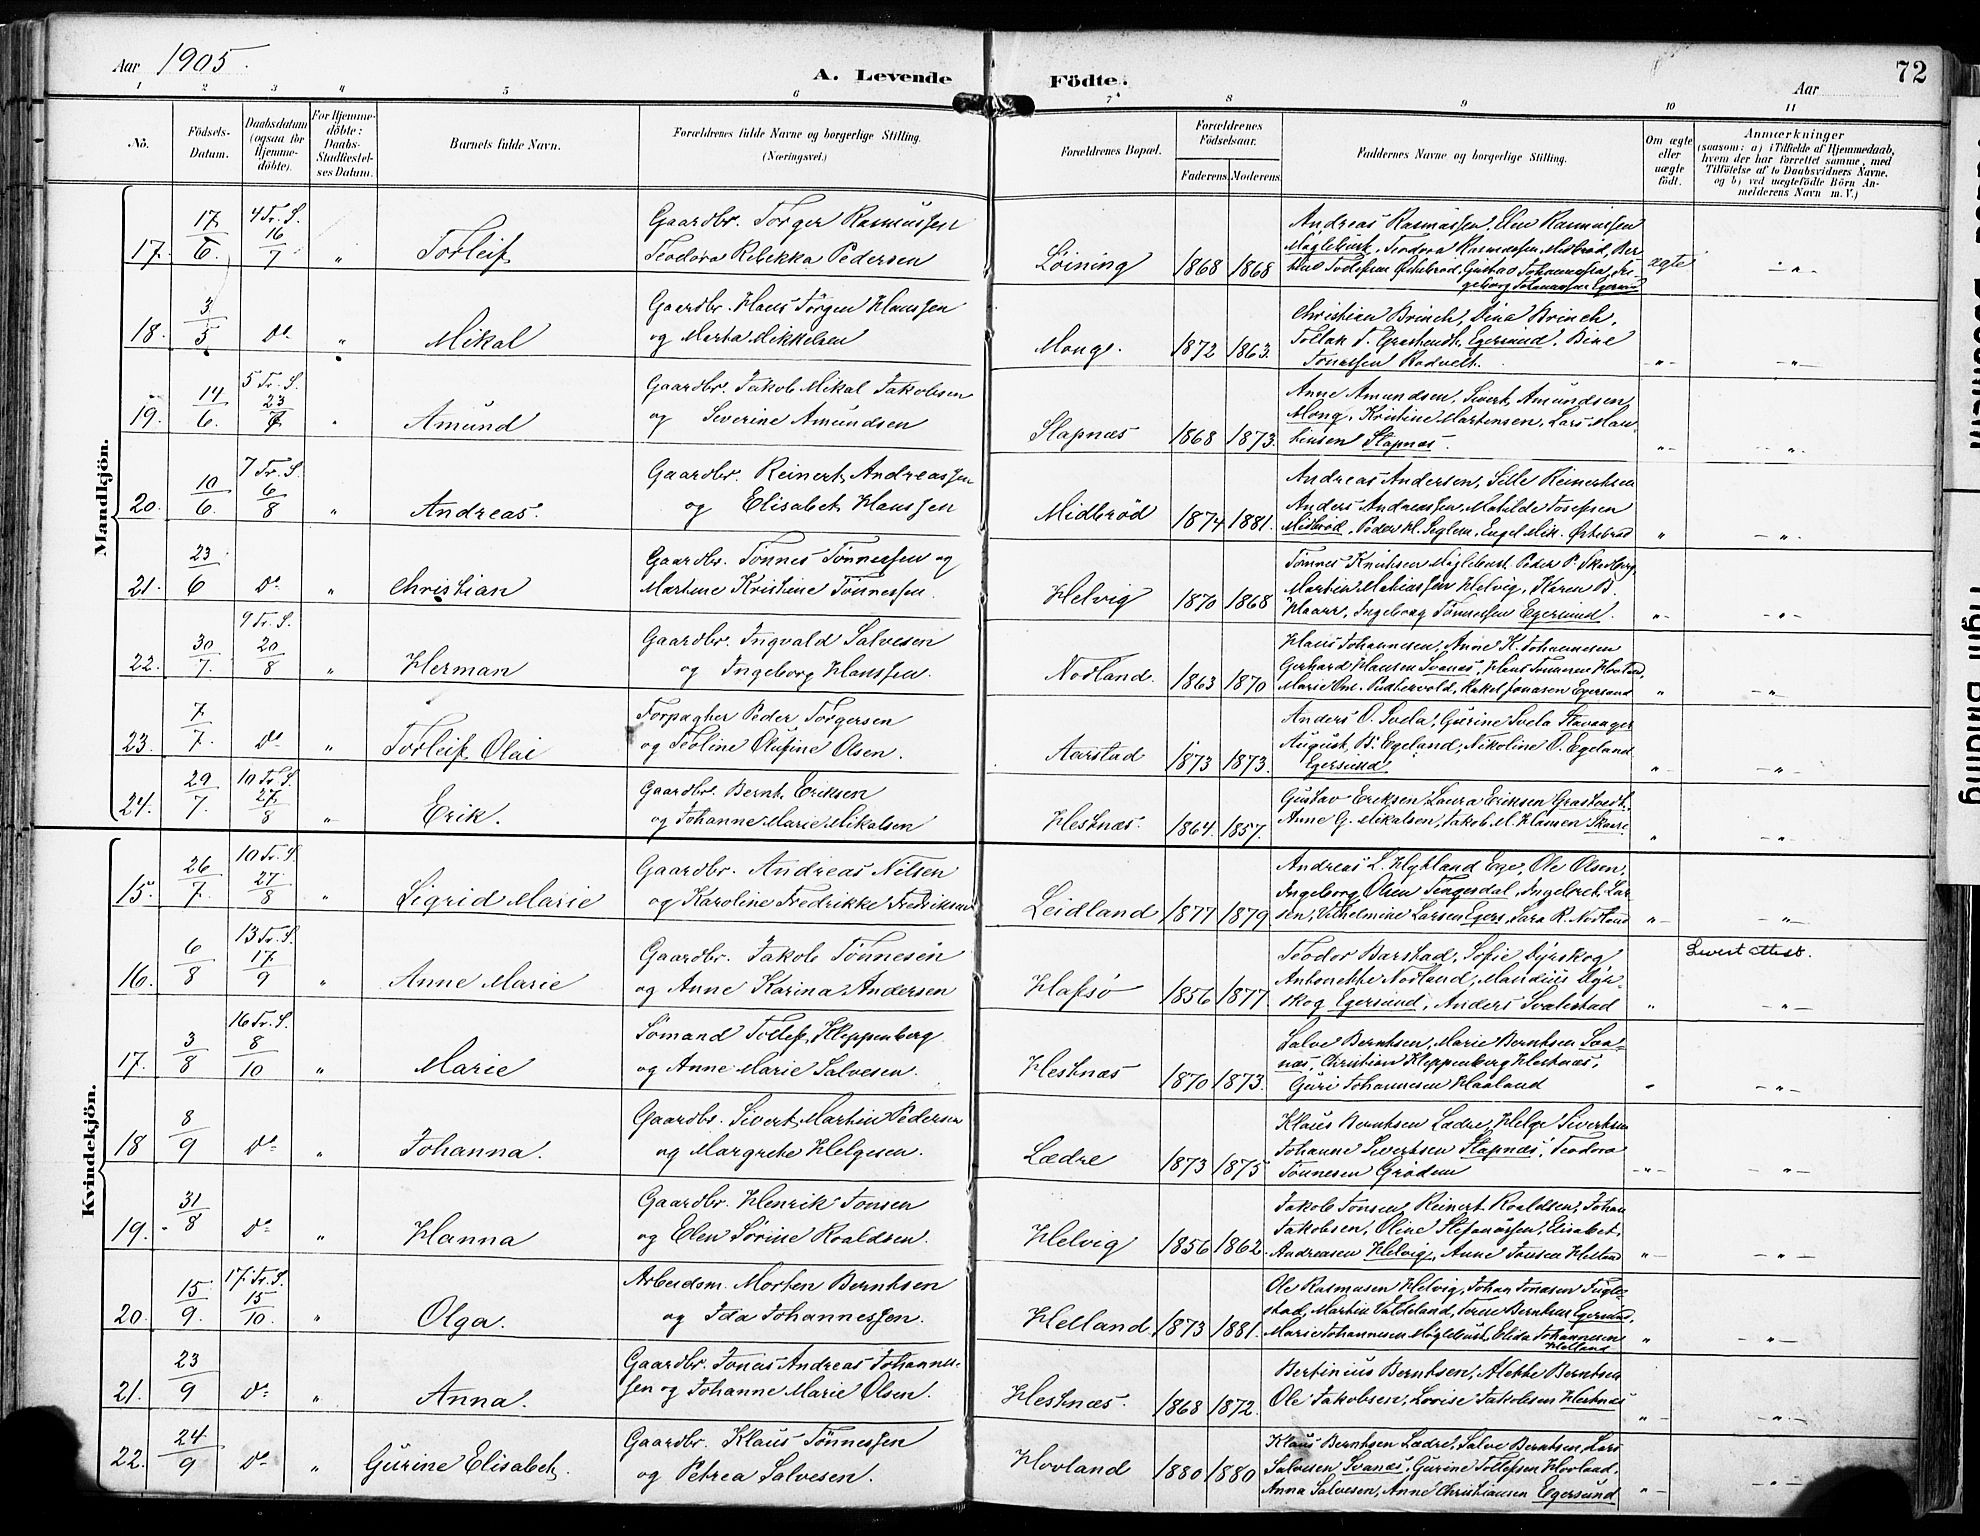 Aar 1905.
A. Levende Födte.
Aar
72
1 2 3 4 5 6 7 8 9 10 11
No.
Födsels-Datum.
Daabsdatum (ogsaa for Hjemme-döbte).
For Hjemme-döbte: Daabs-Stadfæstel-ses Datum.
Barnets fulde Navn.
Forældrenes fulde Navne og borgerlige Stilling.
(Næringsvei.)
Forældrenes Bopæl.
Forældrenes Födselsaar.
Faderens. Moderens.
Faddernes Navne og borgerlige Stilling.
Om ægte eller uægte födt.
Anmærkninger
(saasom: a) i Tilfælde af Hjemmedaab,
hvem der har forrettet samme, med
Tilföielse af to Daabsvidners Navne,
og b) ved uægtefödte Börn An-
melderens Navn m. V.)
Mandkjön.
17. 17/6. 4 Tr. S. 16/7 " Torleif
Gaardbr. Torger Rasmussen
Teodora Rebekka Pedersen
Löining 1868 1868
Andreas Rasmussen, Elen Rasmussen
Maglebust, Teodora Rasmussen, Midbröd, Ber
Gustav Johannessen, In-
geborg Johannessen Egersund
ægte - " -
18. 3/5 Do " Mikal
Gaardbr. Hans Törgen Hanssen
og Marta Mikkelsen
Monge. 1872 1863.
Christian Brinch, Dina Brinch,
Tollak T. Egersund, Bine
Tonessen Rodvelt.
"- "-
19. 14/6. 5 Tr. S. 23/7 " Amund
Gaardbr. Jakob Mikal Jakobsen
og Severine Amundsen
Stapnæs 1868 1873.
Anne Amundsen, Sivert Amundsen,
Mong, Kristine Martensen, Lars Mau-
Stapnæs.
"- - ".
20. 10/6. 7 Tr. S. 6/8 " Andreas.
Gaardbr. Reinert Andreassen
og Elisabet Hanssen
Midbröd 1874 1881.
Andreas Andersen, Sille Reinertsen
Anders Andreassen, Matilde Josefsen
Midbröd, Peder H. Seglem, Engel Mik. Østebröd
" - " -
21. 23/6 Do " Christian
Gaardbr. Tönnes Tönnessen og
Martine Kristine Tönnessen.
Helvig 1870 1868
Tönnes Knutsen Maglebust, Peder P. Skadberg,
Martin Mathiassen Helvig, Karen B.
Haarr, Ingeborg Tönnessen Egersund.
"- - " -
22. 30/7. 9 Tr. S. 20/8 " Herman
Gaardbr. Ingvald Salvesen
og Ingeborg Hanssen.
Nodland. 1863 1870
Hans Johannesen, Anne K. Johannesen
Gerhard Hansen Svanæs, Hans Tönnesen Hovland,
Rakel Jonasen Egersund
" - " -
23. 7/7. Do " Torleif Olai
Forpagter Peder Törgersen
og Teoline Olufine Olsen.
Aarstad 1873 1873.
Anders O. Svela, Gurine Svela Stavanger
August B. Egeland, Nikoline O. Egeland
Egersund
"- - " -
24. 29/7. 10 Tr. S. 27/8 " Erik.
Gaardbr. Bernt Eriksen
og Johanne Marie Mikalsen
Hestnæs. 1864. 1857.
Gustav Eriksen, Laura Eriksen
Anne G. Mikalsen, Jakob M. Hansen Skaare
" - " -
Kvindekjön.
15. 26/7. 10 Tr. S. 27/8 " Sigrid Marie
Gaardbr. Andreas Nilsen
og Karoline Fredrikke Fredriksen
Leidland 1877 1879.
Andreas L. Hyttland Ege, Ole Olsen,
Ingeborg Olsen Tengesdal, Ingebret Lar-
sen, Vilhelmine Larsen Egers, Sara R. Nodland
"- - " -
16. 6/8 13 Tr. S. 17/9 " Anne Marie
Gaardbr. Jakob Tönnesen
og Anne Karina Andersen
Hafsö 1856 1877.
Teodor Barstad, Sofie Dyrskog,
Antonette Nodland, Mandius Dyr-
skog Egersund, Anders Svalestad
" Levert attest.
- " -
17. 3/8 16 Tr. S. 8/10 " Marie
Sömand Tollef Kleppenberg
og Anne Marie Salvesen.
Hestnæs 1870 1873.
Salve Berntsen, Marie Berntsen Sva-
næs, Christian Kleppenberg Hestnæs,
Guri Johannesen Haaland
" - " -
18 8/9 Do " Johanna.
Gaardbr. Sivert Martin Pedersen
og Margrete Helgesen.
Lædre 1873 1875
Klaus Berntsen Lædre, Helge Sivertsen
Johanne Sivertsen Stapnæs, Teodora
Tönnesen Grödem
-"- - " -
19. 31/8 Do " Hanna
Gaardbr. Henrik Tonsen
og Elen Sörine Roaldsen.
Helvig 1856 1862.
Jakob Tonsen, Reinert Roaldsen, Johan
Jakobsen, Oline Stefanussen, Elisabet
Andreasen Helvig, Anne Tonsen Helland
"- - " -
20. 15/9. 17. Tr. S. 15/10. " Olga.
Arbeidsm. Morten Berntsen
og Ida Johannessen.
Helland 1873 1881.
Ole Rasmusen Helvig, Johan Jonasen Fugle-
stad, Martin Valdeland, Berntsen Egersund,
Marie Johannesen Maglebust, Elida Johannesen
Helland
" - " -
21. 23/9 Do " Anna.
Gaardbr. Jonas Andreas Johannes-
sen og Johanne Marie Olsen.
Hestnæs. 1868 1872.
Bertinius Berntsen, Alette Berntsen
Ole Jakobsen, Lovise Jakobsen Hestnæs
"- - ". -
22. 24/9 Do " Gurine Elisabet.
Gaardbr. Klaus Tönnessen
og Petrea Salvesen.
Hovland 1880 1880
Klaus Berntsen Lædre, Salve Berntsen, Lars
Salvesen Svanæs, Gurine Tollefsen Hovland,
Anna Salvesen, Anne Christiansen Egersund
"- - " -